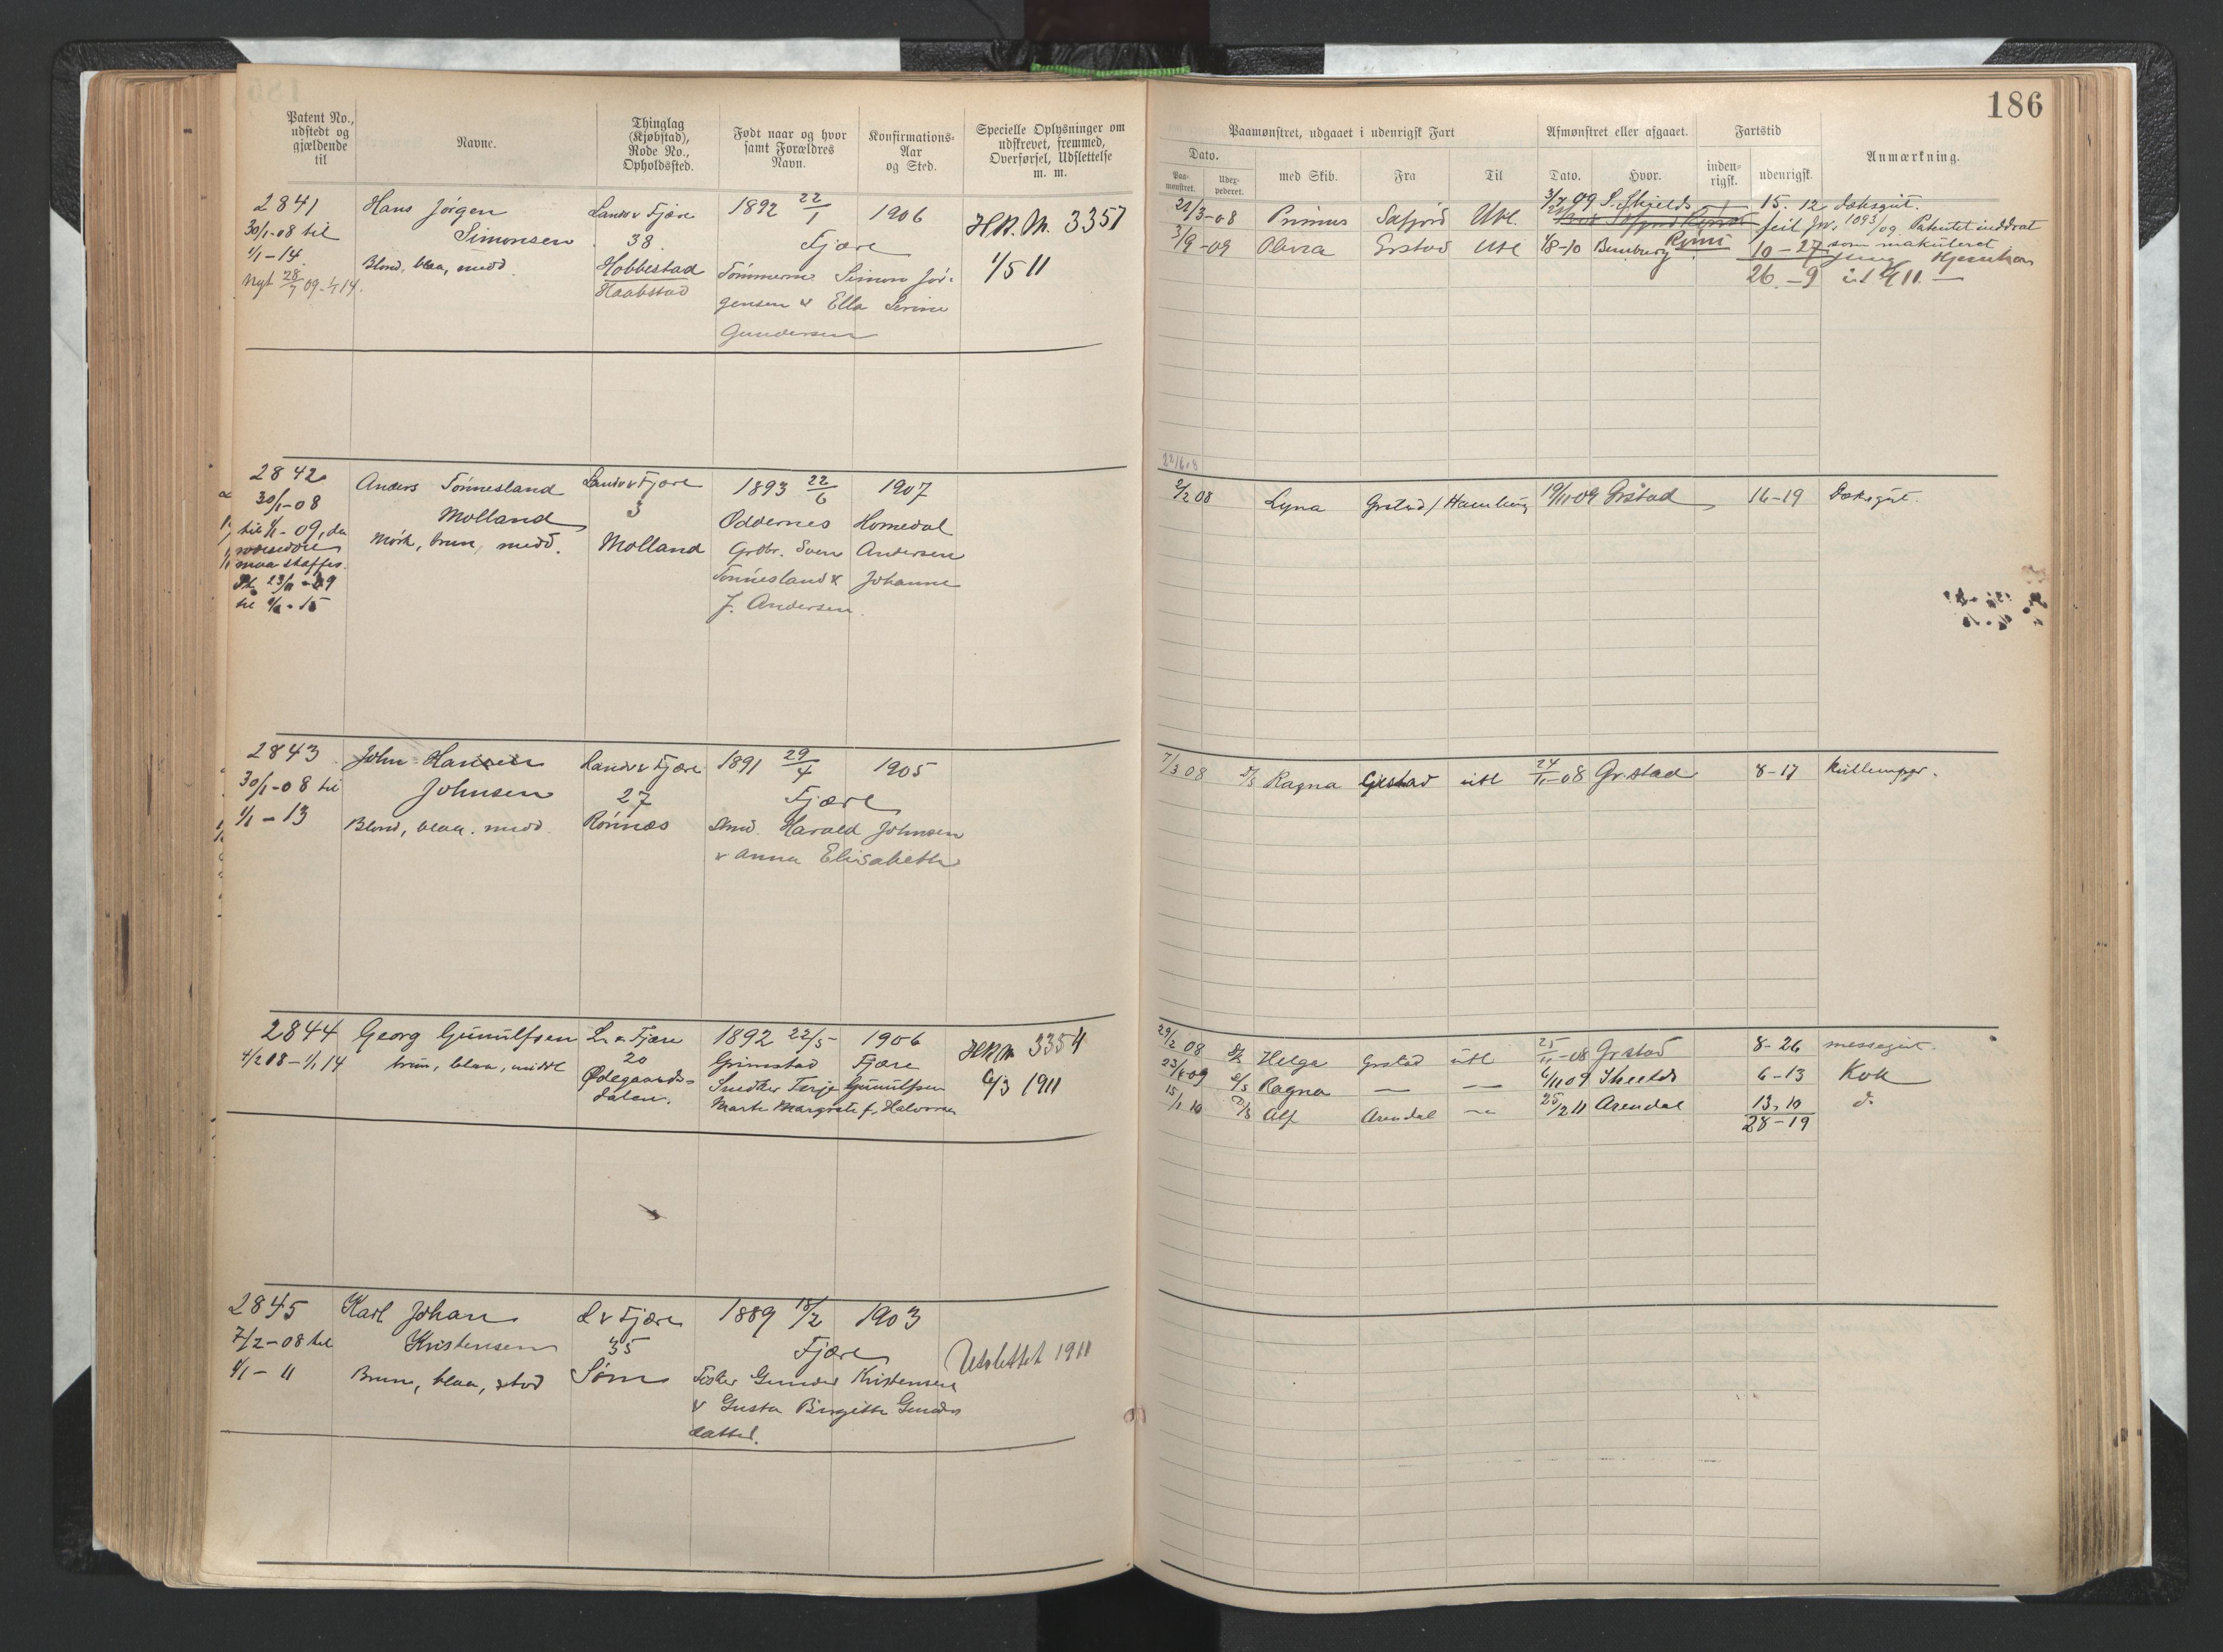 186
Patent No., udstedt og gjældende til
Navne.
Thinglag (Kjøbstad), Rode No., Opholdssted.
Født naar og hvor samt Forældres Navn.
Konfirmations-Aar og Sted.
Specielle Oplysninger om udskrevet, fremmed, Overførsel, Udslettelse m. m.
Paamønstret, udgaaet i udenrigsk Fart
Afmønstret eller afgaaet.
Fartstid
Anmærkning.
Dato.
Paa-mønstret.
Udex-pederet.
med Skib.
Fra
Til
Dato.
Hvor.
inden-rigsk.
udenrigsk.
2841 Hans Jörgen Landv Fjære 1892 22/1 1906 3357
30/1-08 til Simonsen 38. Fjære
1/1-14. Blond, blaa, midd. Hobbestad Tömmerm. Simon Jör- 1/5 11
Nyt 28/7 09-1/1 14. Haabstad gensen & Ella Serine
Gundersen
21/3-08 Primus Utl. 3/7 09 S. Shields 15. 12 dæksgut.
feil Jnr. 1093/09. Patentet inddrat
3/9-09 Olivia Grstad Utl 1/8-10 10-27 som makuleret
26.-9
2842 Anders Tönnesland Landv Fjære 1893 22/6 1907
30/1-08 Molland 3 Oddernes Homedal
til 1/1-09, da Mörk, brun, midd. Molland Grdbr. Sven Andersen
maa skaffes. Tönnesland & Johanne
J. Andersen.
2/2 08 Lyna Grstad/Hamburg 19/11-09 Grstad 16-19 Dæksgut.
2843 John Hansen Landv Fjære 1891 29/4 1905
30/1-08 til Johnsen 27 Fjære
1/1-13 Blond, blaa, midd. Rönnes Harald Johnsen
& Anna Elisabeth
7/3 08 D/S Ragna Grstad utl 24/11-08 Grstad 8-17 Kullemper.
2844 Georg Gunulfsen L. v Fjære 1892 22/5 1906 3354
4/2 08-1/1 14 brun, blaa, middl 20 Grimstad Fjære
Ødegaards- Snedker Terje Gunulfsen 6/3 1911
dalen. Marte Margrete f. Halvorsen
29/2 08 D/S Helga Grstad utl 25/11-08 Grstad 8-26 messegut.
23/4 09 D/S Ragna — — 6/11 09 Shields 6-13 Kok
15/1 10 D/S Alf Arendal — 25/2 11 Arendal 13,10 d.
28-19
2845 Karl Johan L v Fjære 1889 18/2 1903
7/2-08 til Kristensen 35 Fjære Udslettet 1911
1/1-11 Brun, blaa, stod Søm Gunder Kristensen
& Gusta Birgitte Gunders
datter.